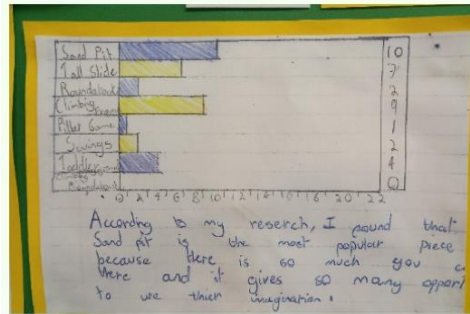 Sand Pit 10
Tall Slide 7
Roundabout 2
Climbing Frame 9
Pillar Game 1
Swings 2
Toddler 4
0
0 2 4 6 8 10 12 14 16 18 20 22
According to my reserch, I found that
Sand pit is the most popular piece
because there is so much you
there and it gives so many opport
to use thier imagination.